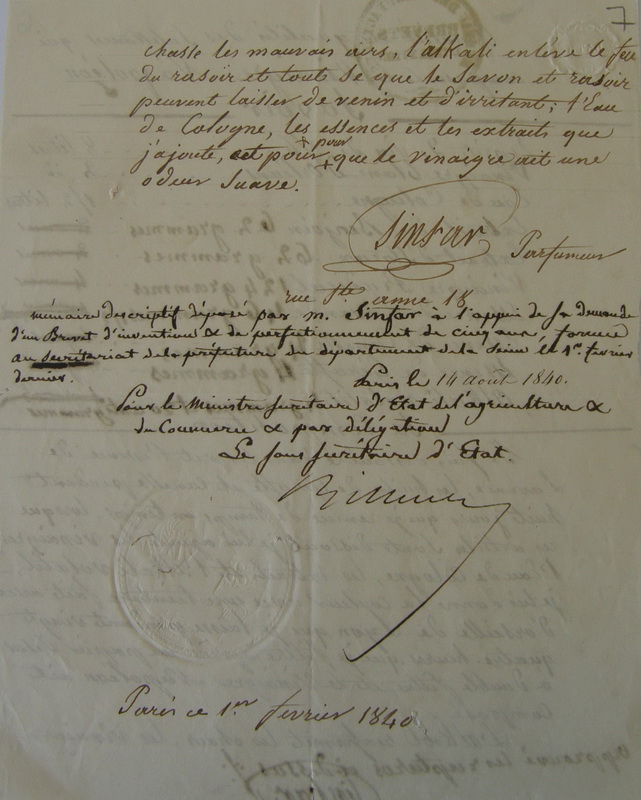 7
chasse les mauvais airs, l'alkali enlève le feu
du rasoir et tout se que le savon et rasoir
peuvent laisser de venin et d'irritant; l'Eau
de Cologne, les essences et les extraits que
j'ajoute, cet pour, que le vinaigre ait une
+ pour
+
odeur suave.
Sinfar Parfumeur
rue Ste anne 18
mémoire descriptif déposé par m. Sinfar à l'appui de sa demande
d'un Brevet d'invention & de perfectionnement de cinq ans, formée
au secrétariat de la préfecture du département de la Seine le 1er février
dernier.
Paris le 14 août 1840.
Pour le Ministre Secrétaire d'Etat de l'agriculture &
du Commerce & par délégation
Le sous secrétaire d'Etat.
Paris ce 1er fevrier 1840